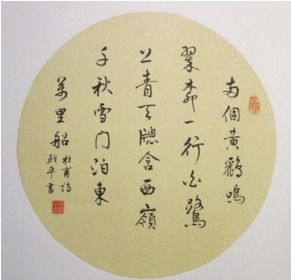 两個黃鸝鳴
翠柳一行白鷺
上青天牕含西嶺
千秋雪门泊東
萬里船
杜甫詩
平書